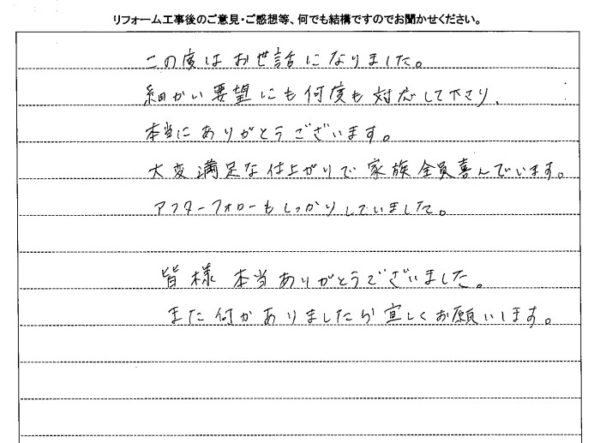 リフォーム工事後のご意見・ご感想等、何でも結構ですのでお聞かせください。
この度はお世話になりました。
細かい要望にも何度も対応して下さり、
本当にありがとうございます。
大変満足な仕上がりで家族全員喜んでいます。
アフターフォローもしっかりしていました。
皆様本当ありがとうございました。
また何かありましたら宜しくお願いします。